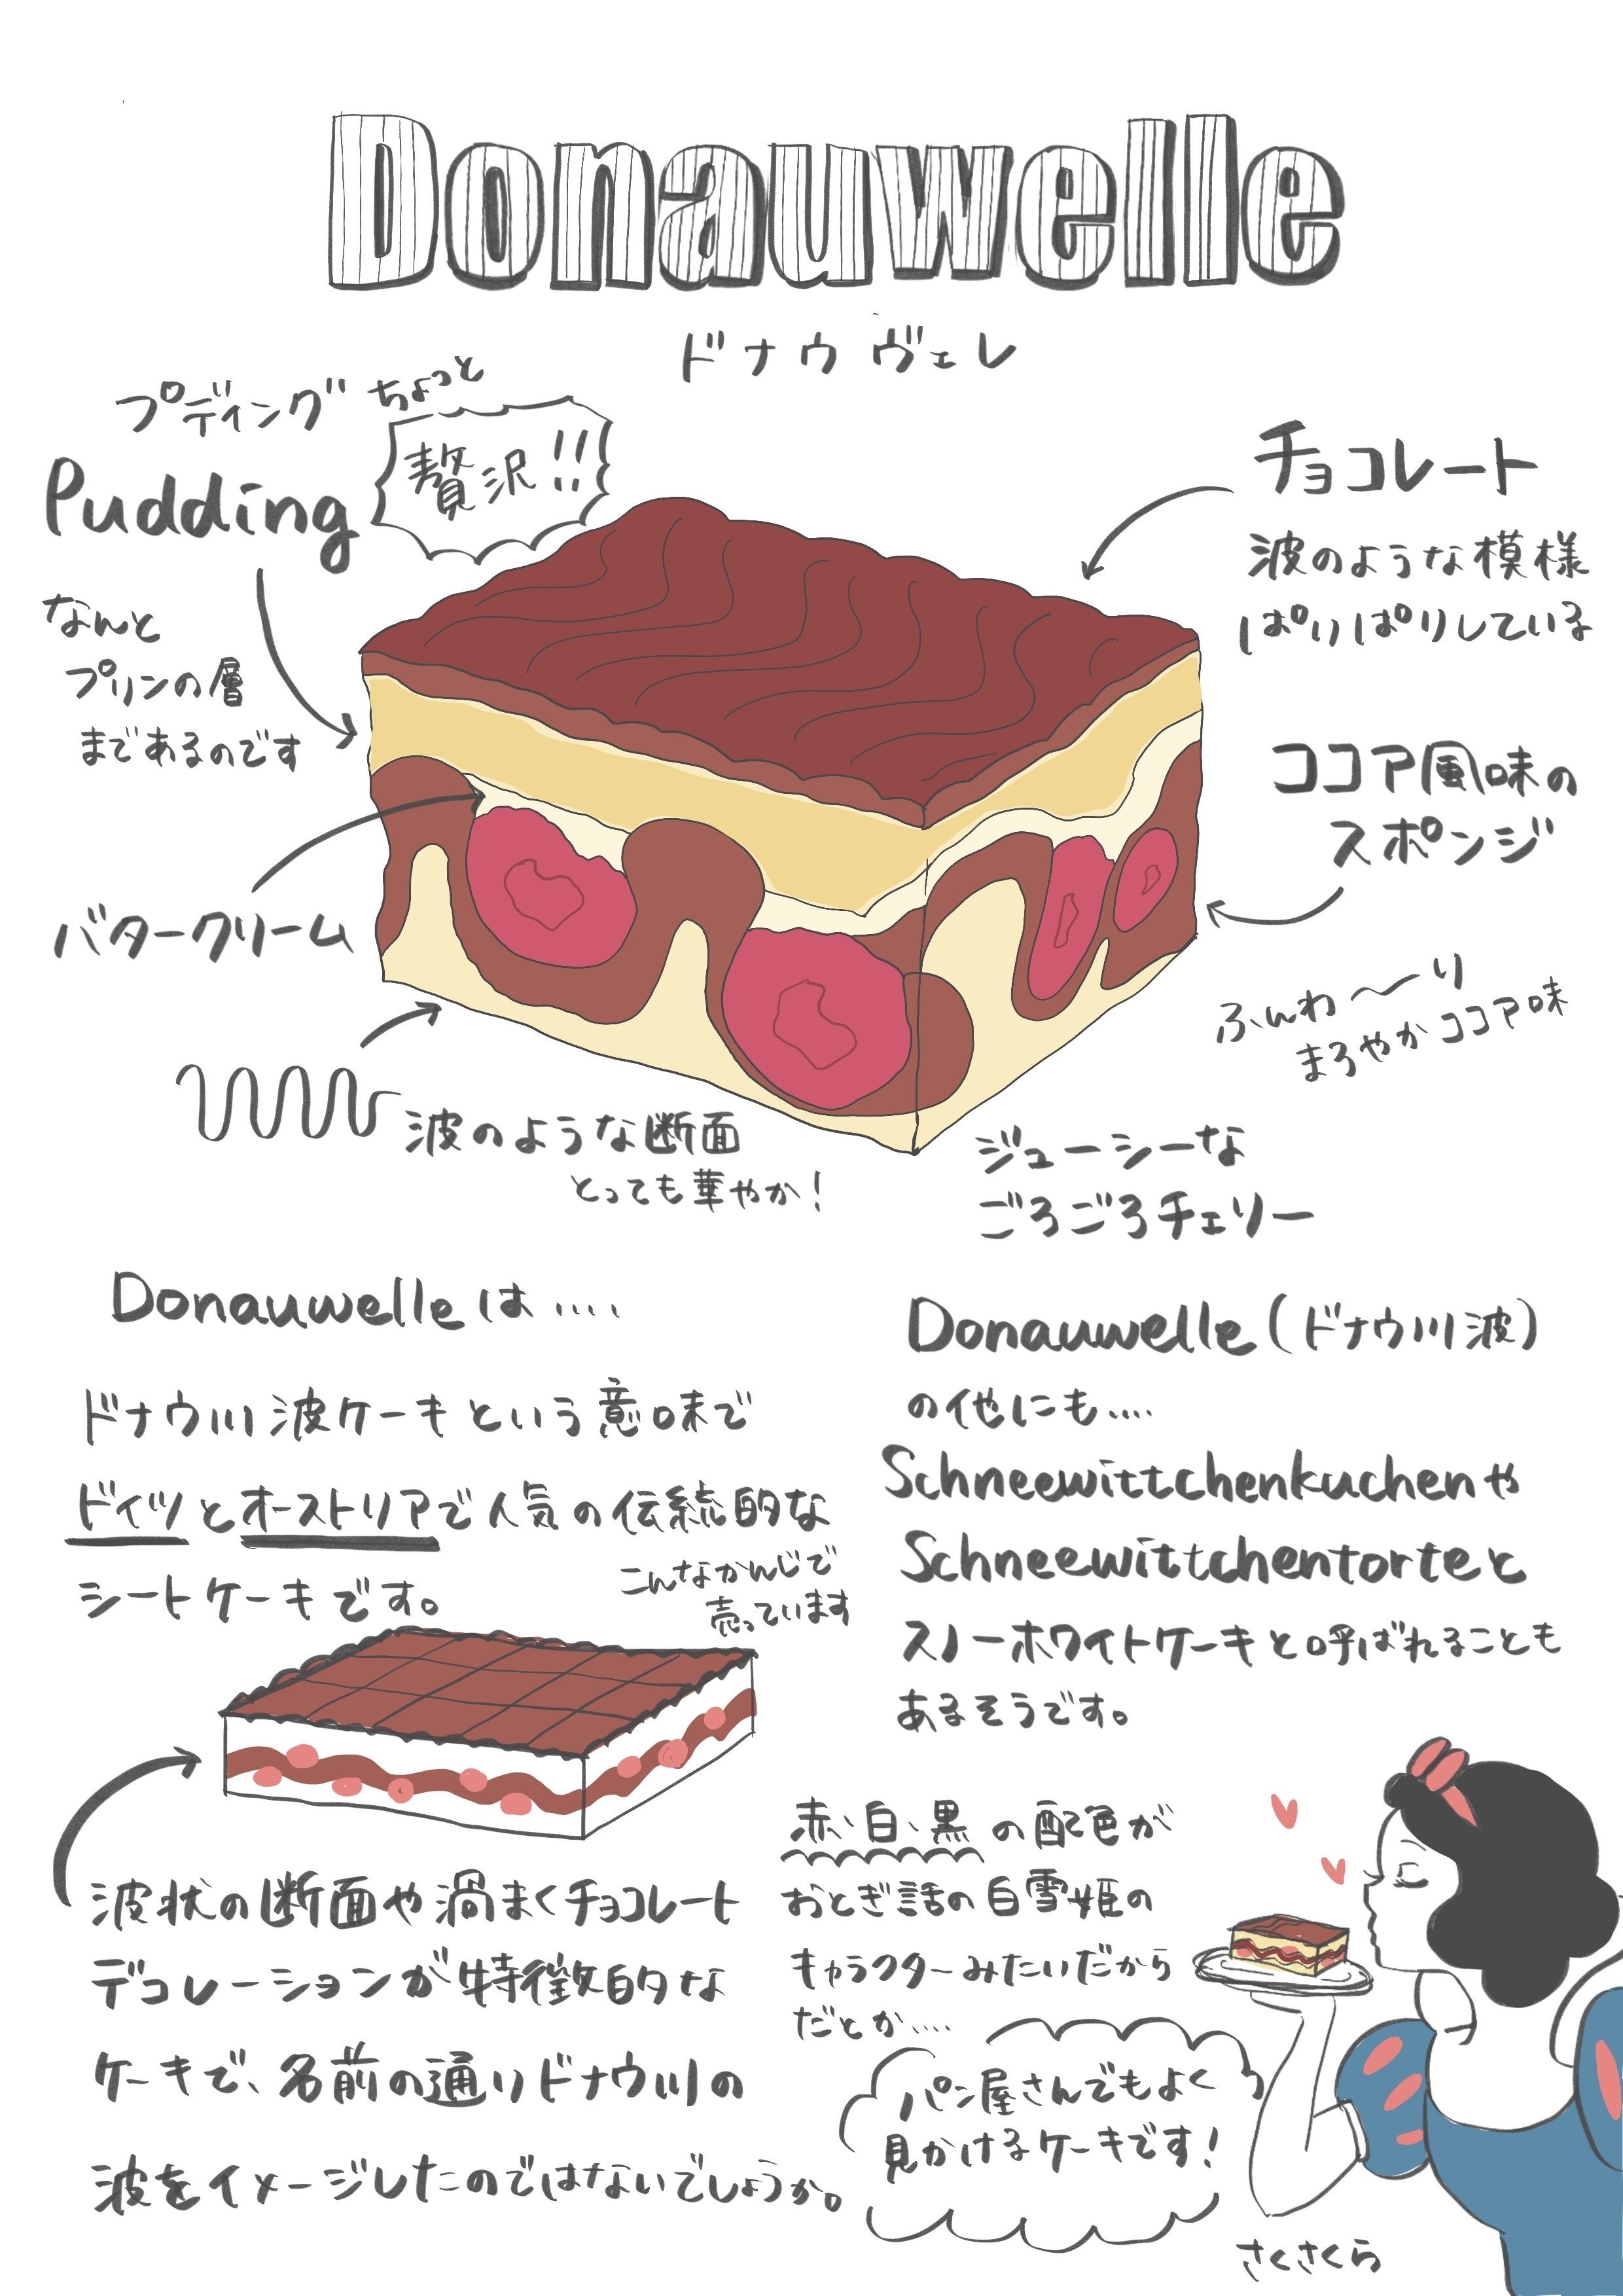 Donauwelle
ドナウヴェレ
プディング
Pudding
ちょっと
贅沢!!
なんと
プリンの層
まであるのです
バタークリーム
波のような断面
とっても華やか!
チョコレート
波のような模様
ぱりぱりしている
ココア風味の
スポンジ
ふんわ〜り
まろやかココア味
ジューシーな
ごろごろチェリー
Donauwelleは....
ドナウ川波ケーキという意味で
ドイツとオーストリアで人気の伝統的な
シートケーキです。
こんなかんじで
売っています
波状の断面や渦まくチョコレート
デコレーションが特徴的な
ケーキで、名前の通りドナウ川の
波をイメージしたのではないでしょうか。
Donauwelle(ドナウ川波)
の他にも....
Schneewittchenkuchenや
Schneewittchentorteと
スノーホワイトケーキと呼ばれることも
あるそうです。
赤、白、黒の配色が
おとぎ話の白雪姫の
キャラクターみたいだから
だとか....
パン屋さんでもよく
見かけるケーキです!
さくさくら